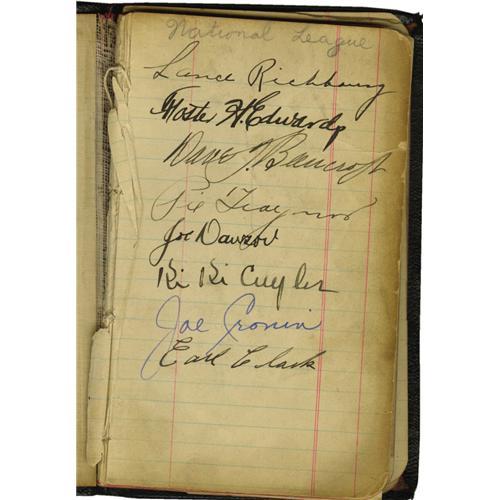 National League
Lance Richbourg
Foster H. Edwards
Dave J. Bancroft
Pie Traynor
Joe Dawson
Ki Ki Cuyler
Joe Cronin
Earl Clark